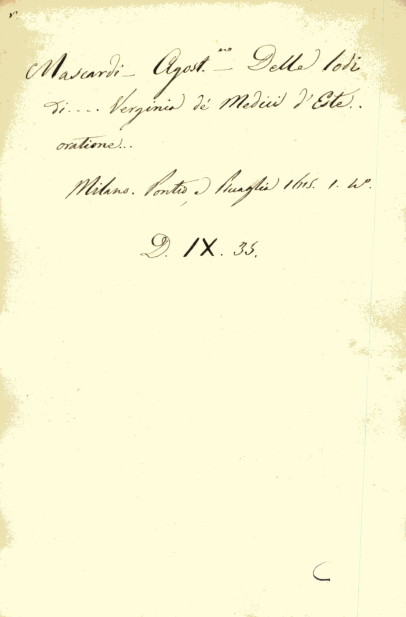 Mascardi - Agost.no - Delle lodi
di.... Verginia dé Medici d'Este..
oratione..
Milano. Pontio e Piccaglia 1615. 1. 4°.
D. IX. 35.